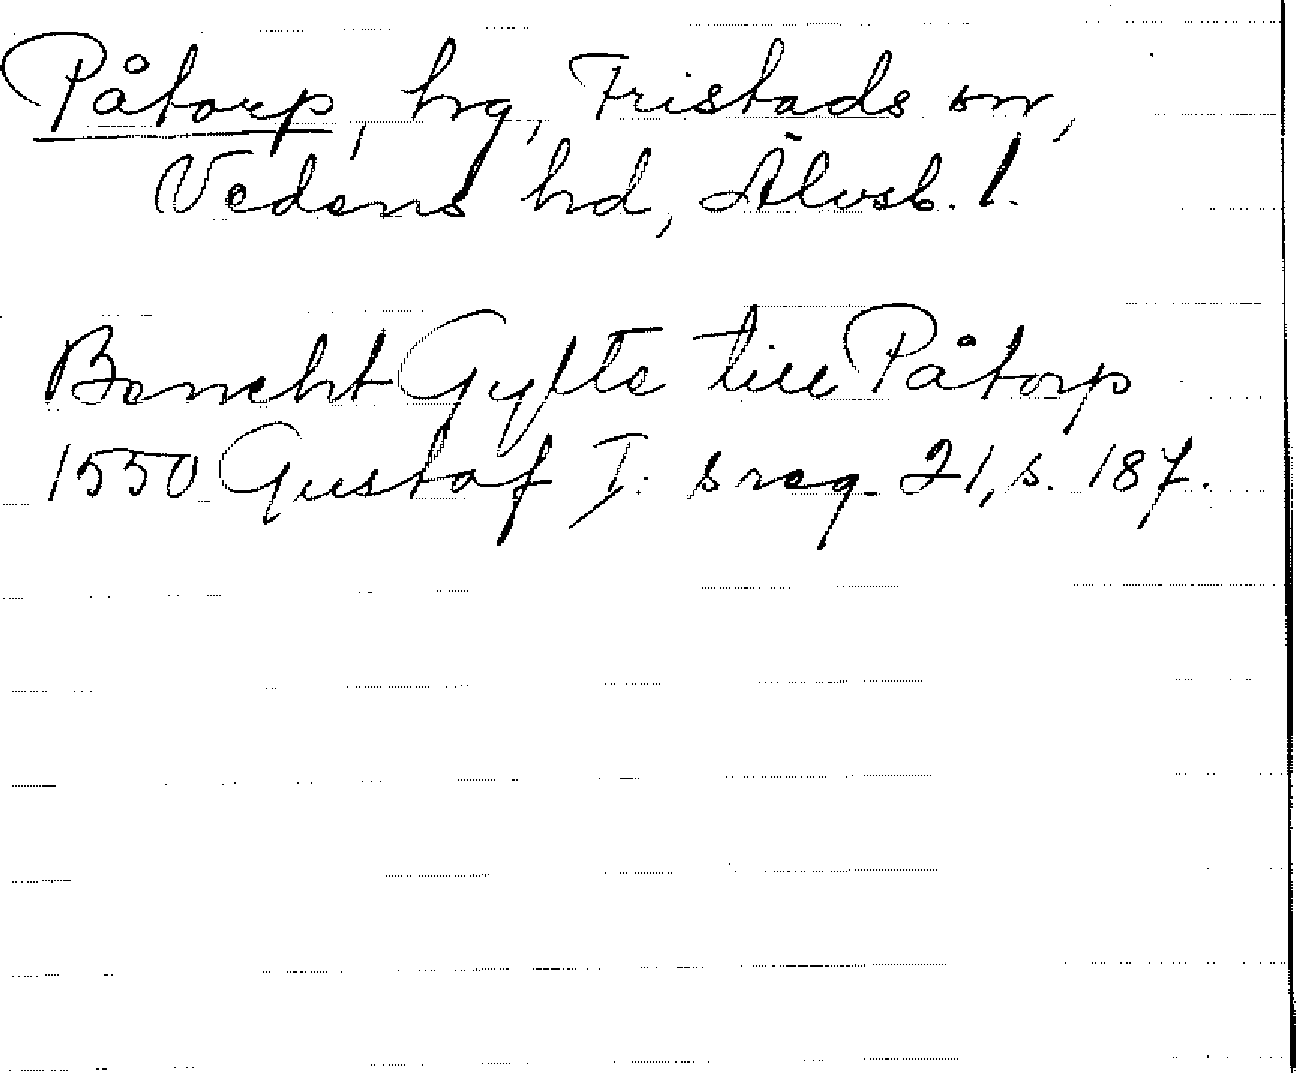 Påtorp, hg, Fristads sn,
Vedens hd, Älvsb. l.
Bencht Gyfte till Påtorp
1550 Gustaf I:s reg. 21, s. 187.